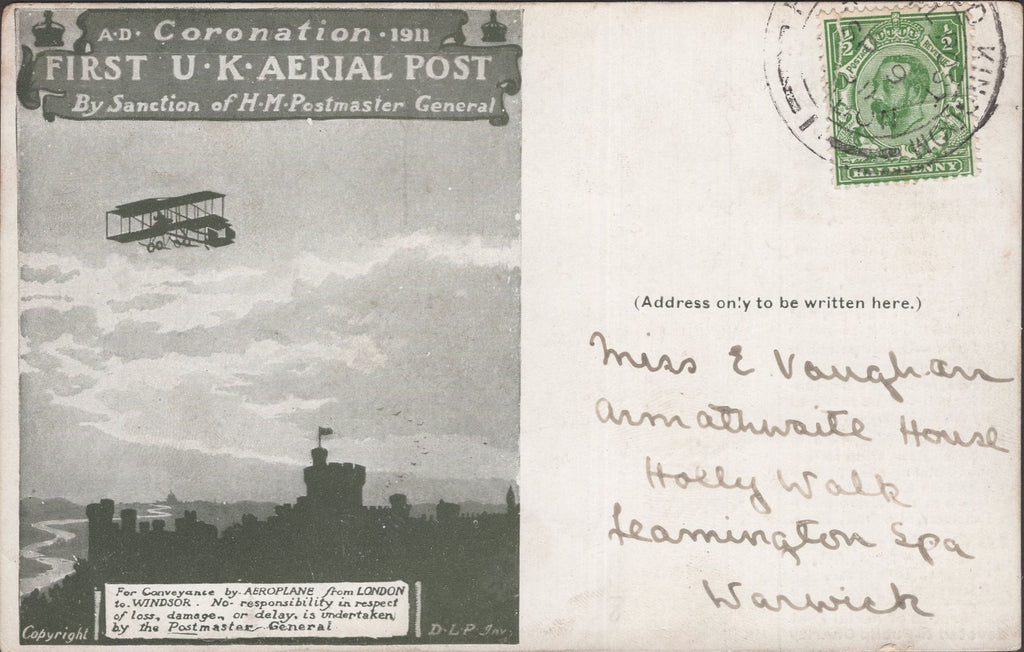 A·D· Coronation ·1911
FIRST U·K·AERIAL POST
By Sanction of H·M·Postmaster General.
For Conveyance by AEROPLANE from LONDON
to WINDSOR. No responsibility in respect
of loss, damage, or delay, is undertaken
by the Postmaster General
Copyright
D·L·P·Inv.
POSTAGE
REVENUE
½
½
HALFPENNY
(Address only to be written here.)
Miss E Vaughan
Armathwaite House
Holly Walk
Leamington Spa
Warwick